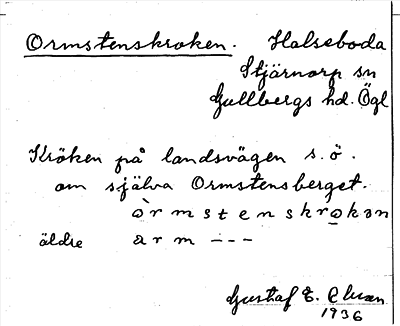 Ormstenskroken. Halseboda
Stjärnorp sn
Gullbergs hd. Ögl
Kröken på landsvägen s.ö.
om själva Ormstensberget.
òrmstenskro̲kən
äldre arm ---
Gustaf E.
1936